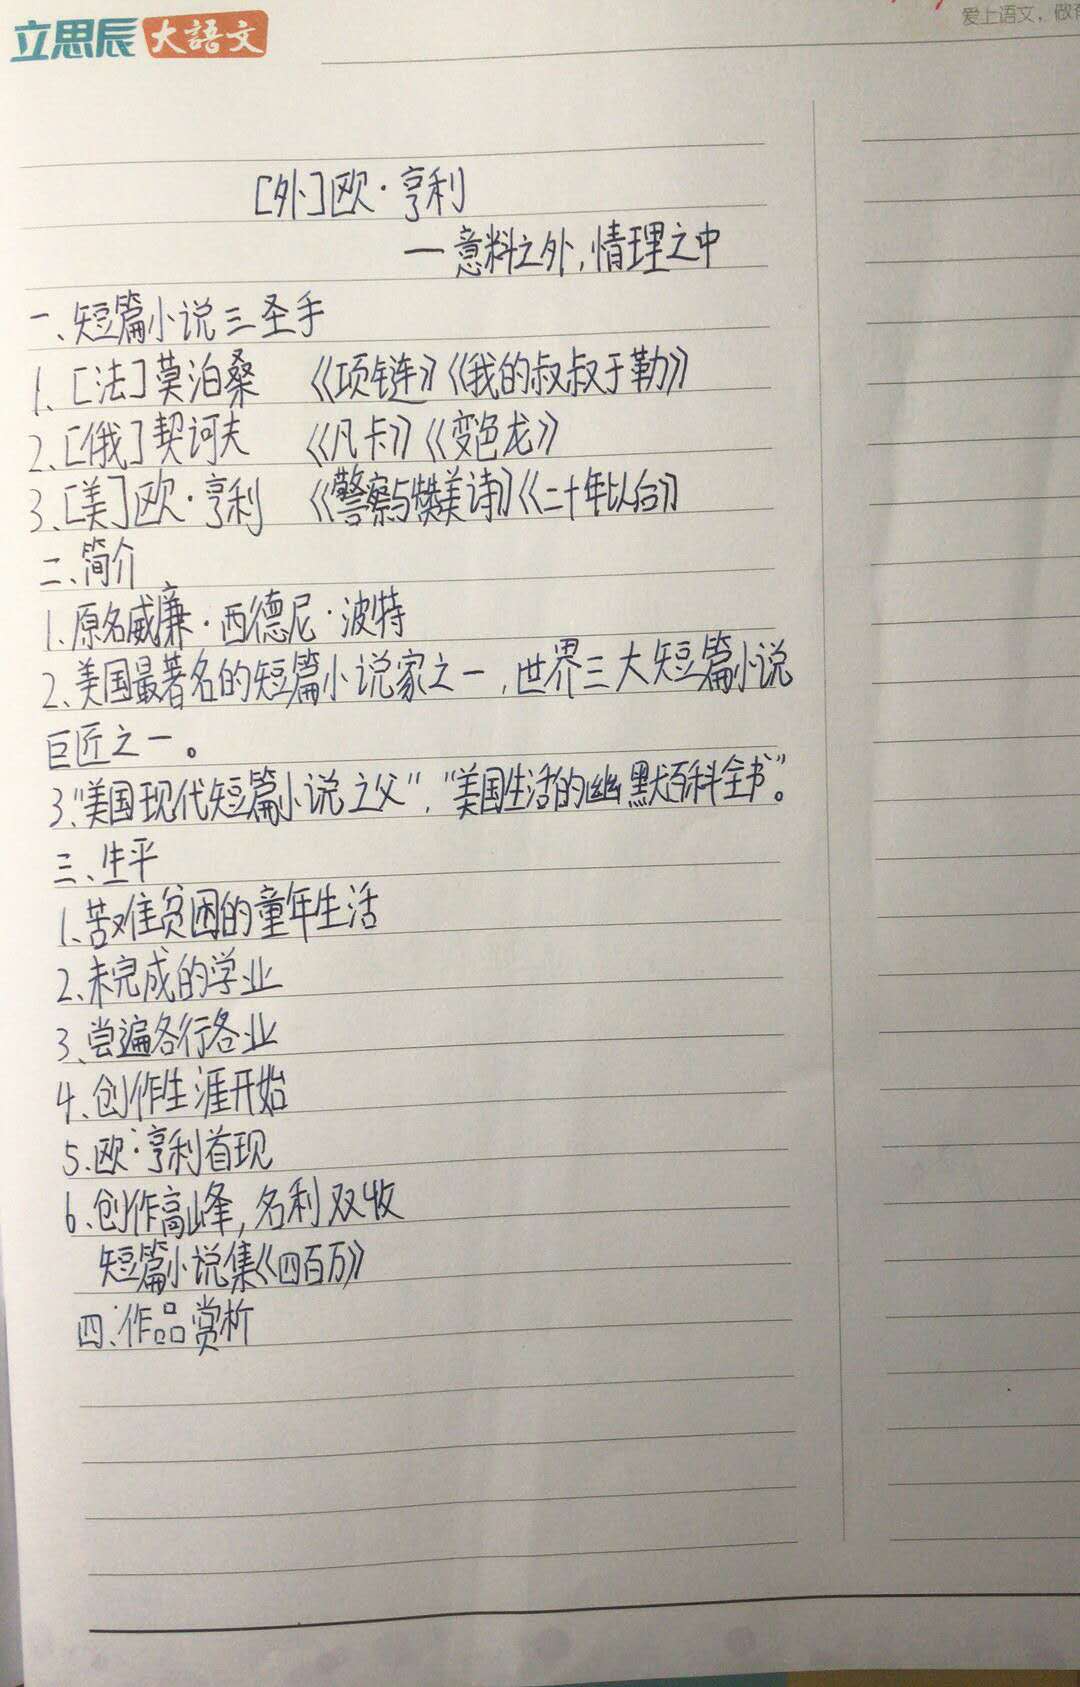 立思辰大語文
爱上语文，做有
[外]欧·亨利
—意料之外,情理之中
一、短篇小说三圣手
1、[法]莫泊桑 《项链》《我的叔叔于勒》
2、[俄]契诃夫 《凡卡》《变色龙》
3、[美]欧·亨利 《警察与赞美诗》《二十年以后》
二、简介
1、原名威廉·西德尼·波特
2、美国最著名的短篇小说家之一,世界三大短篇小说
巨匠之一。
3、“美国现代短篇小说之父”,“美国生活的幽默百科全书”。
三、生平
1、苦难贫困的童年生活
2、未完成的学业
3、尝遍各行各业
4、创作生涯开始
5、欧·亨利首现
6、创作高峰,名利双收
短篇小说集《四百万》
四、作品赏析